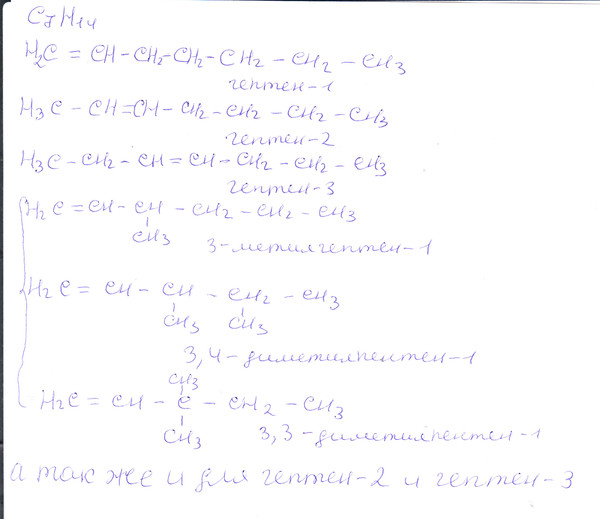 C7H14
H2C = CH - CH2 - CH2 - CH2 - CH2 - CH3
гептен-1
H3C - CH = CH - CH2 - CH2 - CH2 - CH3
гептен-2
H3C - CH2 - CH = CH - CH2 - CH2 - CH3
гептен-3
H2C = CH - CH - CH2 - CH2 - CH3
CH3
3-метилгептен-1
H2C = CH - CH - CH2 - CH3
CH3 CH3
3,4-диметилпентен-1
CH3
H2C = CH - C - CH2 - CH3
CH3
3,3-диметилпентен-1
а так же и для гептен-2 и гептен-3